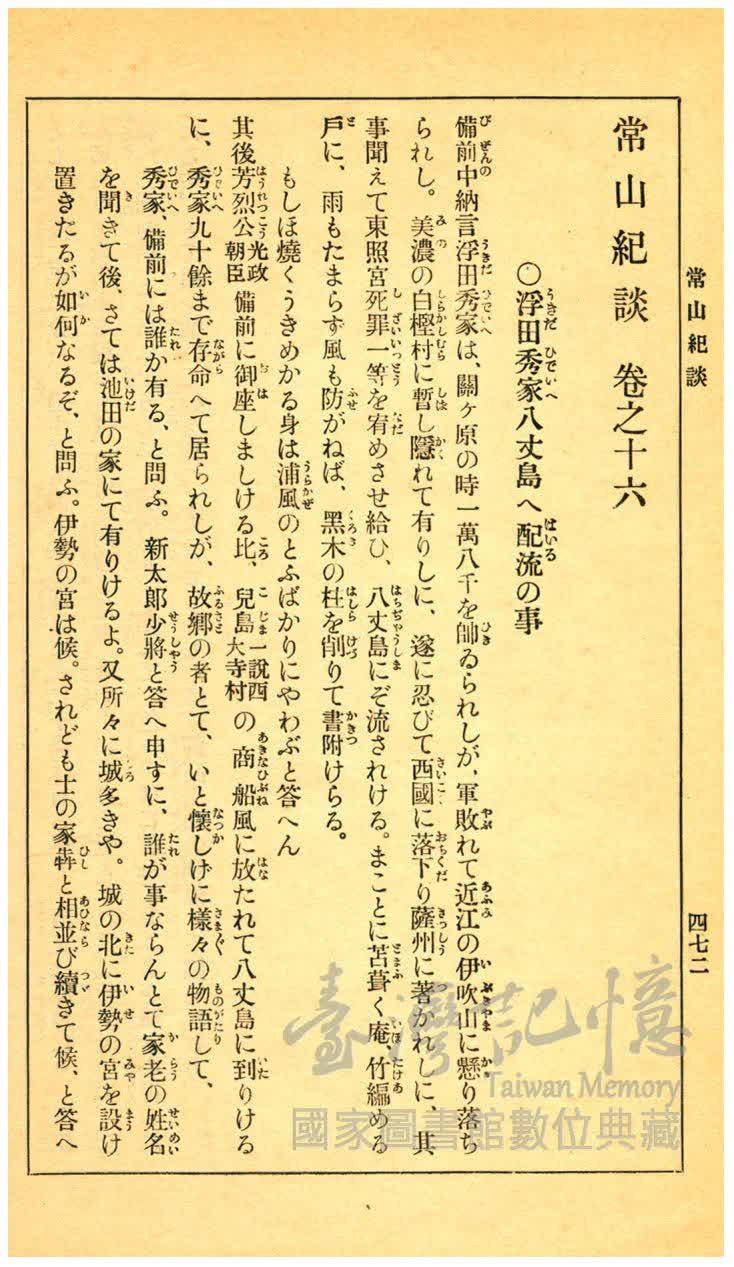 常山紀談
四七二
常山紀談 卷之十六
〇浮田秀家八丈島へ配流の事
備前中納言浮田秀家は、關ヶ原の時一萬八千を帥ゐられしが、軍敗れて近江の伊吹山に懸り落ち
られし。美濃の白樫村に暫し隱れて有りしに、遂に忍びて西國に落下り薩州に著かれしに、其
事聞えて東照宮死罪一等を宥めさせ給ひ、八丈島にぞ流されける。まことに苫葺く庵、竹編める
戸に、雨もたまらず風も防がねば、黑木の柱を削りて書附けらる。
もしほ燒くうきめかる身は浦風のとふばかりにやわぶと答へん
其後芳烈公光政朝臣備前に御座しましける比、兒島一說西大寺村の商船風に放たれて八丈島に到りける
に、秀家九十餘まで存命へて居られしが、故鄕の者とて、いと懷しげに樣々の物語して、
秀家、備前には誰か有る、と問ふ。新太郎少將と答へ申すに、誰が事ならんとて家老の姓名
を聞きて後、さては池田の家にて有りけるよ。又所々に城多きや。城の北に伊勢の宮を設け
置きたるが如何なるぞ、と問ふ。伊勢の宮は候。されども士の家犇と相並び續きて候、と答へ
臺灣記憶
Taiwan Memory
國家圖書館數位典藏